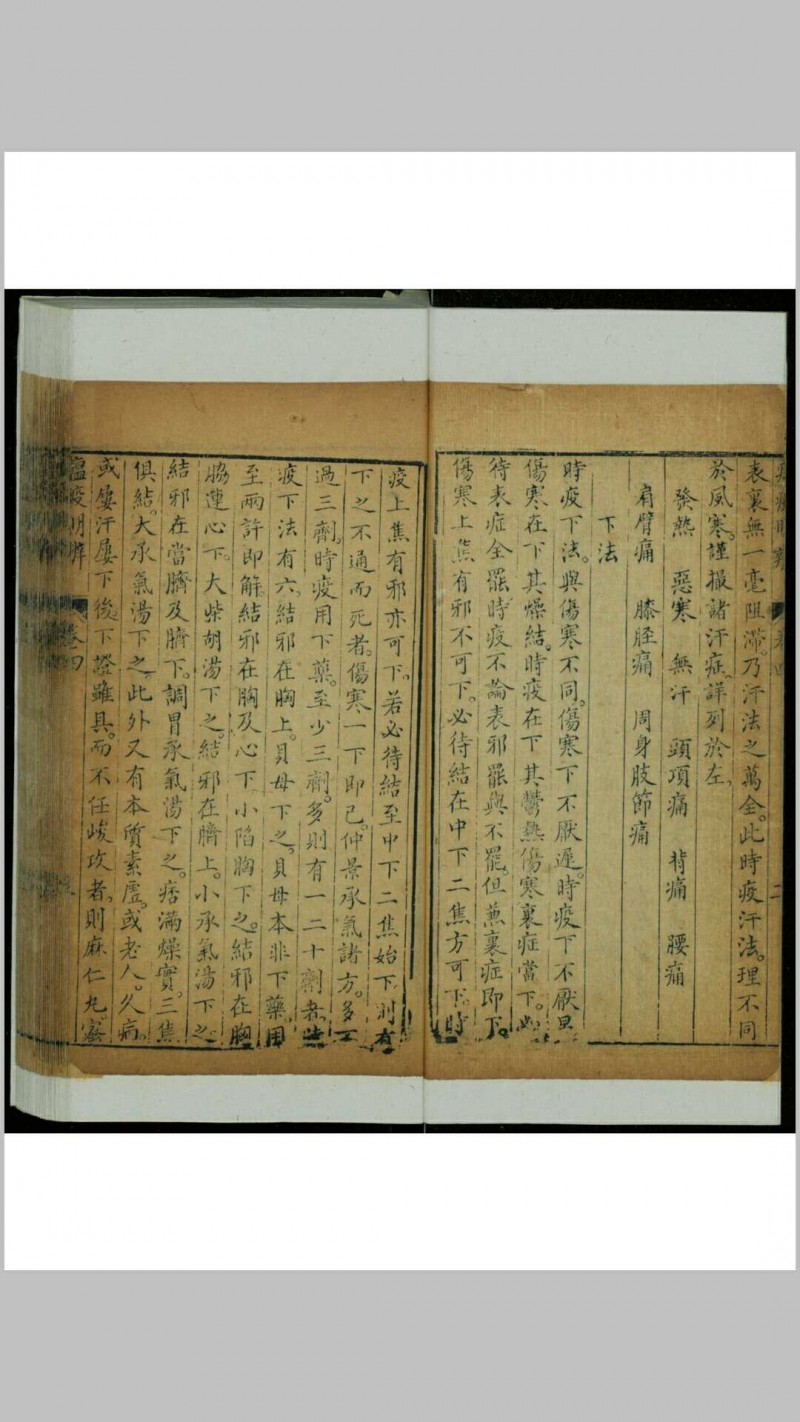 表裏無一毫阻滯。乃汗法之萬全。此時疫汗法。理不同
於風寒。謹撮諸汗症。詳列於左。
發熱　惡寒　無汗　頭項痛　背痛　腰痛
肩臂痛　膝脛痛　周身肢節痛
下法
時疫下法。與傷寒不同。傷寒下不厭遲。時疫下不厭早
傷寒在下其燥結。時疫在下其鬱熱傷寒裏症當下。必
待表症全罷時疫不論表邪罷與不罷。但兼裏症即下。
傷寒上焦有邪不可下。必待結在中下二焦方可下。時
疫上焦有邪亦可下。若必待結至中下二焦始下。則有
下之不通而死者。傷寒一下即已。仲景承氣諸方。多不
過三劑。時疫用下藥。至少三劑。多則有一二十劑者。時
疫下法有六。結邪在胸上。貝母下之。貝母本非下藥用
至兩許即解。結邪在胸及心下。小陷胸下之。結邪在胸
脇連心下。大柴胡湯下之。結邪在臍上。小承氣湯下之
結邪在當臍及臍下。調胃承氣湯下之。痞滿燥實。三焦
俱結。大承氣湯下之。此外又有本質素虛。或老人。久病。
或屢汗屢下後。下證雖具。而不任峻攻者。則麻仁丸蜜
瘟疫明辨　卷四　二